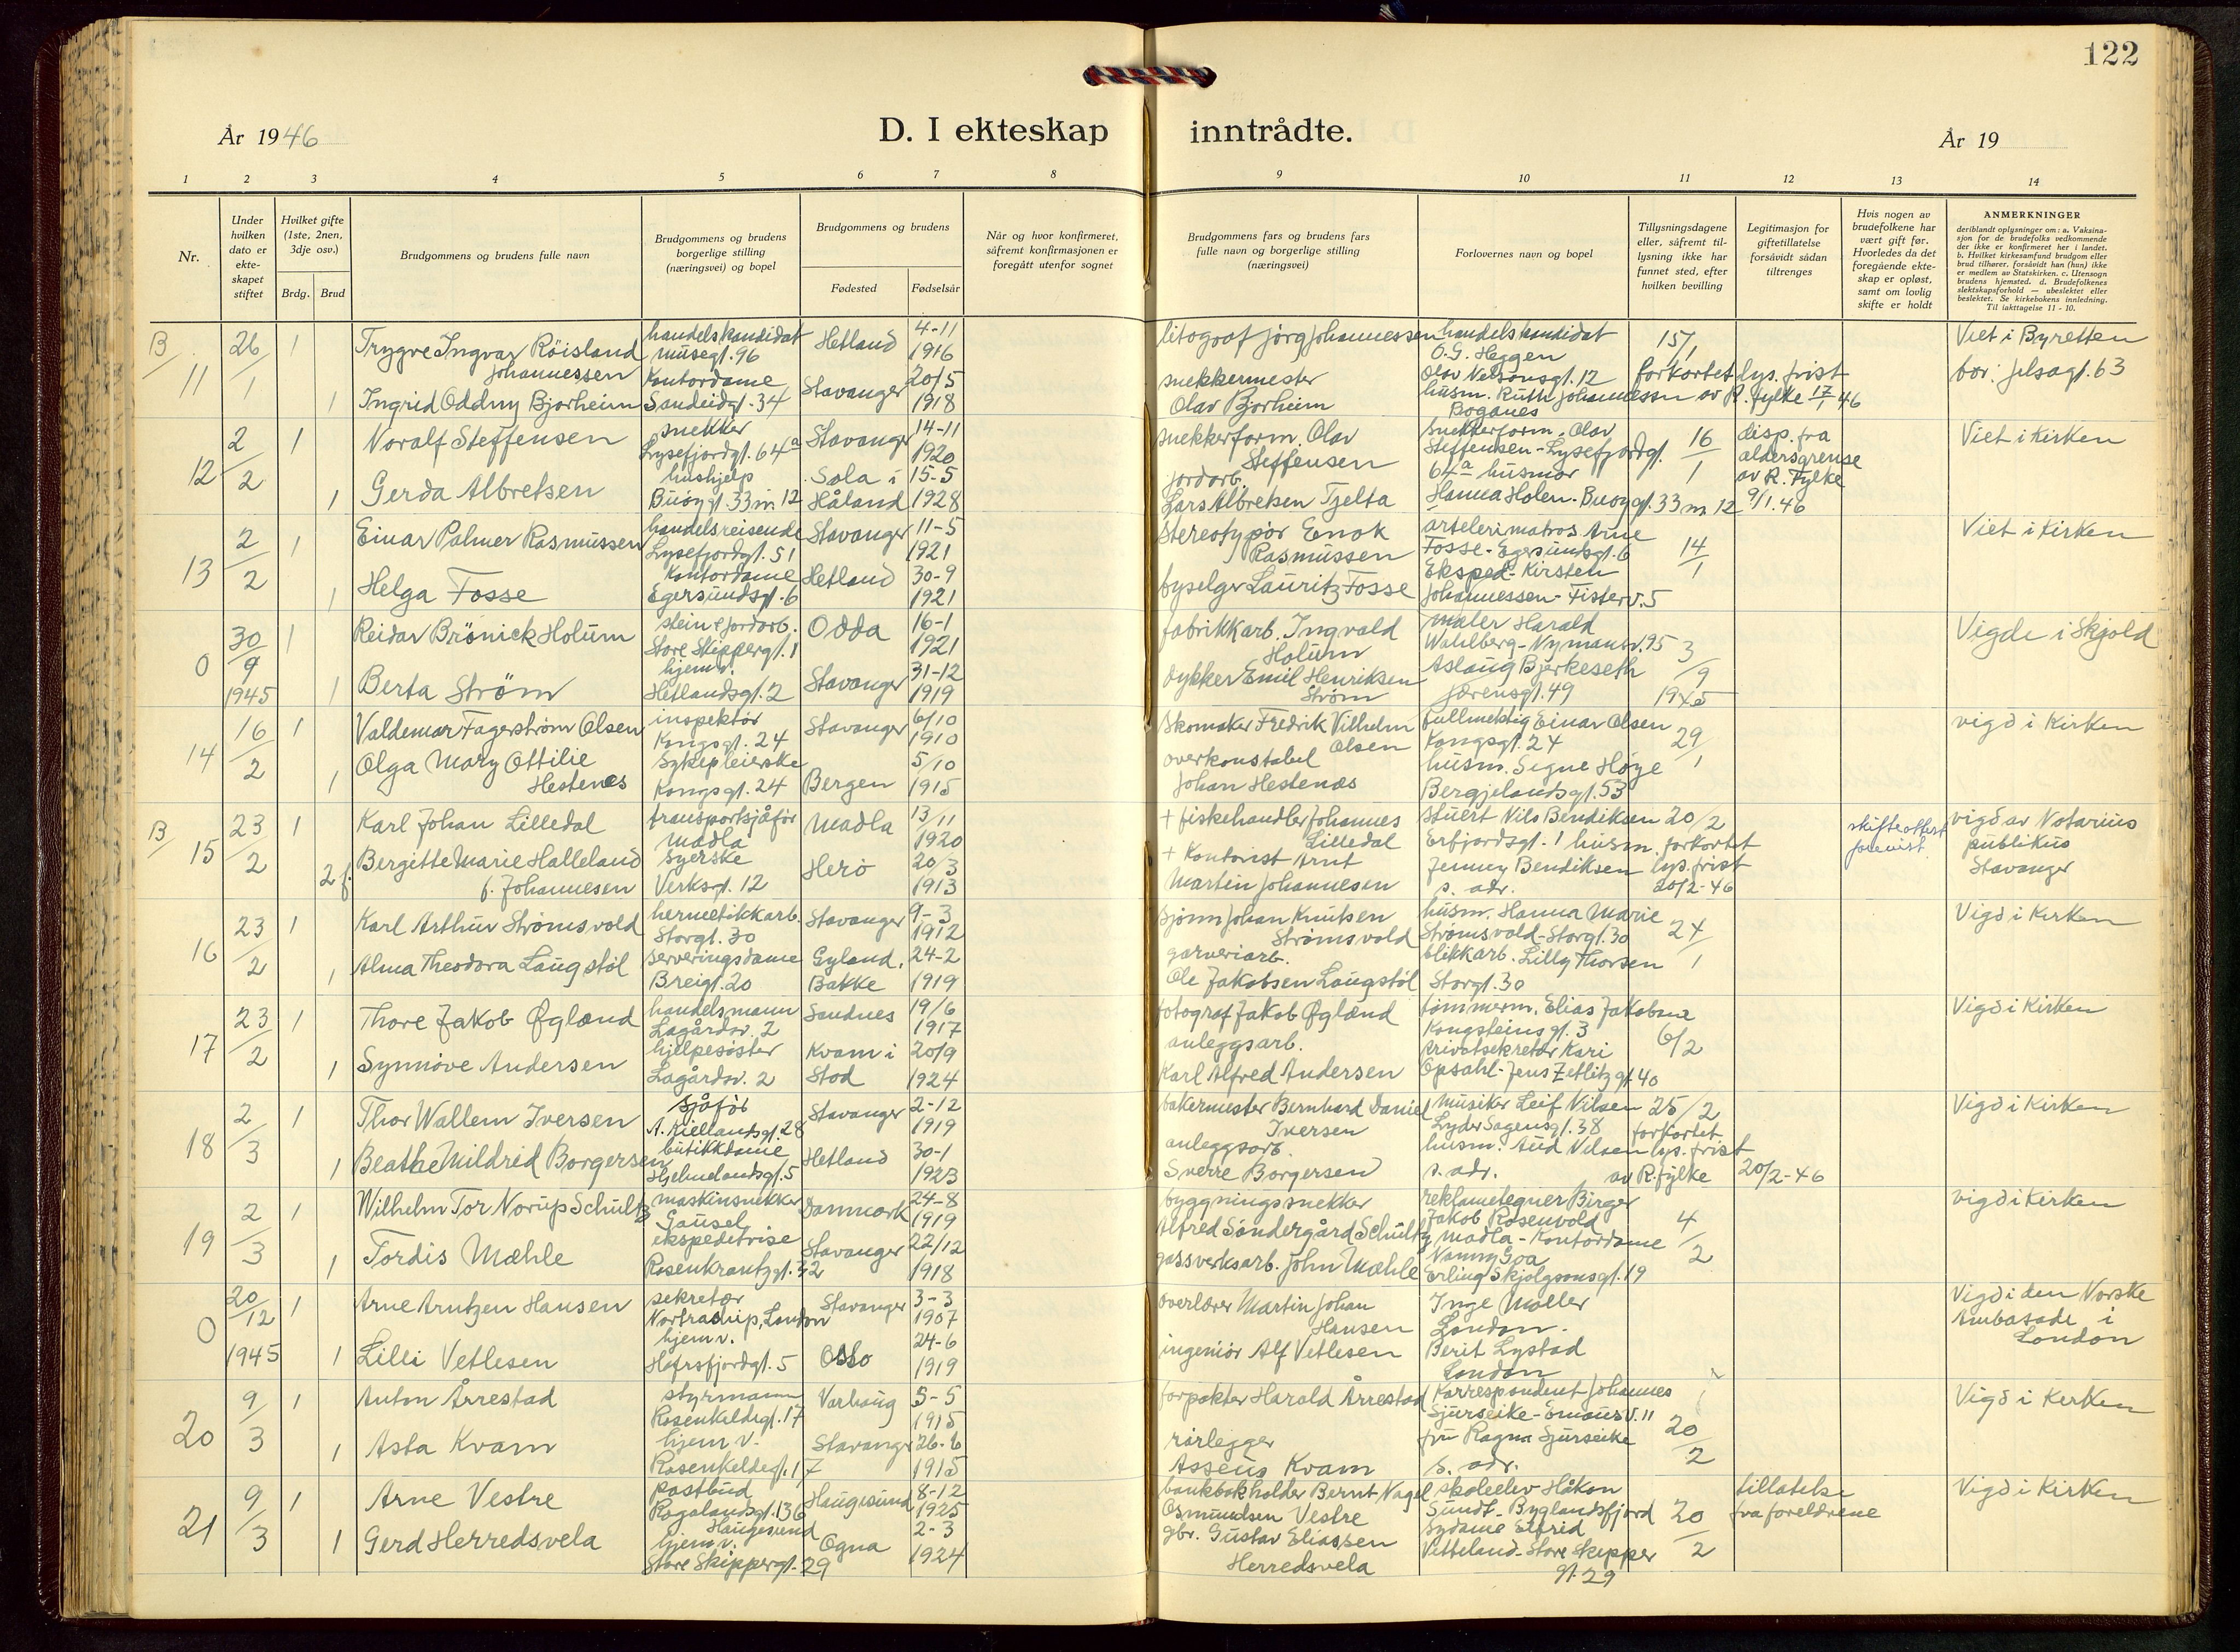 122
År 1946
D. I ekteskap inntrådte.
År 19
1 2 3 4 5 6 7 8 9 10 11 12 13 14
Nr.
Under hvilken dato er ekteskapet stiftet
Hvilket gifte (1ste, 2nen, 3dje osv.)
Brdg. Brud
Brudgommens og brudens fulle navn
Brudgommens og brudens borgerlige stilling (næringsvei) og bopel
Brudgommens og brudens
Fødested Fødselsår
Når og hvor konfirmeret, såfremt konfirmasjonen er foregått utenfor sognet
Brudgommens fars og brudens fars fulle navn og borgerlige stilling (næringsvei)
Forlovernes navn og bopel
Tillysningsdagene eller, såfremt tillysning ikke har funnet sted, efter hvilken bevilling
Legitimasjon for giftetillatelse forsåvidt sådan tiltrenges
Hvis nogen av brudefolkene har vært gift før. Hvorledes da det foregående ekteskap er opløst, samt om lovlig skifte er holdt
ANMERKNINGER
deriblandt oplysninger om: a. Vaksinasjon for de brudefolks vedkommende der ikke er konfirmeret her i landet. b. Hvilket kirkesamfund brudgom eller brud tilhører, forsåvidt han (hun) ikke er medlem av Statskirken. c. Utensogn brudens hjemsted. d. Brudefolkenes slektskapsforhold — ubeslektet eller beslektet. Se kirkebokens innledning. Til iakttagelse 11 - 10.
B/ 11
26/1
1
Trygve Ingvar Röisland Johannessen
handelskandidat
Musegt. 96
Hetland
4-11 1916
litograf Jörg Johannessen
handelskandidat
O.G. Heggen
Olav Nelsonsgt. 12
15/1
forkortet lys. frist
av R. fylke 17/1 46
Viet i Byretten
bor: Jelsagt. 63
1
Ingrid Oddny Bjorheim
Kontordame
Sandeidgt. 34
Stavanger
20/5 1918
snekkermester
Olav Bjorheim
husm. Ruth Johannessen
Boganes
12
2/2
1
Noralf Steffensen
snekker
Lysefjordgt. 64a
Stavanger
14-11 1920
snekkerform. Olav Steffensen
snekkerform. Olav
Steffensen - Lysefjordgt.
64a husmor
16/1
disp. fra
aldersgrense
av R. Fylke
9/1. 46
Viet i Kirken
1
Gerda Albretsen
hushjelp
Buöygt. 33 m 12
Sola i Håland
15-5 1928
jordarb.
Lars Albretsen Tjelta
Hanna Holen - Buöygt. 33 m 12
13
2/2
1
Einar Palmer Rasmussen
handelsreisende
Lysefjordgt. 51
Stavanger
11-5 1921
stereotypör Enok Rasmussen
artelerimatros Arne
Fosse - Egersundsgt. 6
14/1
Viet i Kirken
1
Helga Fosse
Kontordame
Egersundsgt. 6
Hetland
30-9 1921
byselger Lauritz Fosse
Eksped. Kirsten
Johannessen - Fisterv. 5
0
30/9 1945
1
Reidar Brönick Holum
stein & jordarb.
Store Skippergt. 1
Odda
16-1 1921
fabrikkarb. Ingvald Holum
maler Harald
Wahlberg - Nymansv. 95
3/9 1945
Vigde i Skjold
1
Berta Ström
hjem v.
Hetlandsgt. 2
Stavanger
31-12 1919
dykker Emil Henriksen Ström
Aslaug Bjerkeseth
Jærensgt. 49
14
16/2
1
Valdemar Fagerström Olsen
inspektör
Kongsgt. 24
Stavanger
6/10 1910
Skomaker Fredrik Vilhelm Olsen
fullmektig Einar Olsen
Kongsgt. 24
29/1
vigd i Kirken
1
Olga Mary Ottilie Hestenes
Sykepleierske
Kongsgt. 24
Bergen
5/10 1915
overkonstabel
Johan Hestenæs
husm. Signe Höye
Bergjelandsgt. 53
B/ 15
23/2
1
Karl Johan Lilledal
transportsjåför
Madla
Madla
13/11 1920
+ fiskehandler Johannes Lilledal
Stuert Nils Bendiksen
Erfjordsgt. 1 husm.
20/2
forkortet
lys. frist
20/2-46
skifteattest
forevist.
vigd av Notarius
publikus
Stavanger
2 f.
Bergitte Marie Halleland
f. Johannesen
Syerske
Verksgt. 12
Herö
20/3 1913
+ Kontorist Arnt
Martin Johannesen
Jenney Bendiksen
s. adr.
16
23/2
1
Karl Arthur Strömsvold
hermetikkarb.
Storgt. 30
Stavanger
9-3 1912
sjöm Johan Knutsen Strömsvold
husm. Hanna Marie
Strömsvold - Storgt. 30
24/1
Vigd i Kirken
1
Alma Theodora Laugstöl
serveringsdame
Breigt. 20
Gyland, Bakke
24-2 1919
garveriarb.
Ole Jakobsen Laugstöl
blikkarb. Lilly Thorsen
Storgt. 30
17
23/2
1
Thore Jakob Øglænd
handelsmann
Lagårdsv. 2
Sandnes
19/6 1917
fotograf Jakob Øglænd
tömmerm. Elias Jakobsen
Kongsteinsgt. 3
6/2
Vigd i Kirken
1
Synnöve Andersen
hjelpesöster
Lagårdsv. 2
Kvam i Stod
20/9 1924
anleggsarb.
Karl Alfred Andersen
Privatsekretær Kari
Opsahl - Jens Zetlitzgt. 40
18
2/3
1
Thor Wallem Iversen
sjåför
A. Kiellandsgt. 28
Stavanger
2-12 1919
bakermester Bernhard Daniel Iversen
Musiker Leif Nilsen
Lyder Sagensgt. 38
25/2
forkortet
lys. frist
av R. fylke 20/2-46
Vigd i Kirken
1
Beathe Mildrid Borgersen
butikkdame
Hjelmelandsgt. 5
Hetland
30-1 1923
anleggsarb.
Sverre Borgersen
husm. Aud Nilsen
s. adr.
19
2/3
1
Wilhelm Tor Norup Schultz
maskinsnekker
Gausel
Danmark
24-8 1919
bygningssnekker
Alfred Söndergård Schultz
reklametegner Birger
Jakob Rosenvold
Madla - Kontordame
4/2
vigd i Kirken
1
Tordis Mæhle
ekspeditrise
Rosenkrantzgt. 32
Stavanger
22/12 1918
gassverksarb. John Mæhle
Nanny Goa
Erling Skjalgsonsgt. 19
0
20/12 1945
1
Arne Arntzen Hansen
sekretær
Nortraship, London
Stavanger
3-3 1907
overlærer Martin Johan Hansen
Inge Möller
London.
Vigd i den Norske
Ambasade i
London
1
Lilli Vetlesen
hjem v.
Hafrsfjordgt. 5
Oslo
24-6 1919
ingeniör Alf Vetlesen
Berit Lystad
London
20
9/3
1
Anton Årrestad
styrmann
Rosenkildegt. 17
Varhaug
5-5 1915
forpakter Harald Årrestad
Korrespondent Johannes
Sjurseike - Emausv. 11
20/2
Vigd i Kirken
1
Asta Kvam
hjem v.
Rosenkildegt. 17
Stavanger
26-6 1915
rörlegger
Asseus Kvam
fru Ragna Sjurseike
s. adr.
21
9/3
1
Arne Vestre
postbud
Rogalandsgt. 136
Haugesund
Haugesund
8-12 1925
bankbokholder Bernt Nagel
Osmundsen Vestre
skoleelev Håkon
Sundt - Byglandsfjord
20/2
tillatelse
fra foreldrene
Vigd i Kirken
1
Gerd Herredsvela
hjem v.
Store Skippergt. 29
Ogna
2-3 1924
gbr. Gustav Eliassen
Herredsvela
Sydame Elfrid
Vetteland - Store Skipper
gt. 29